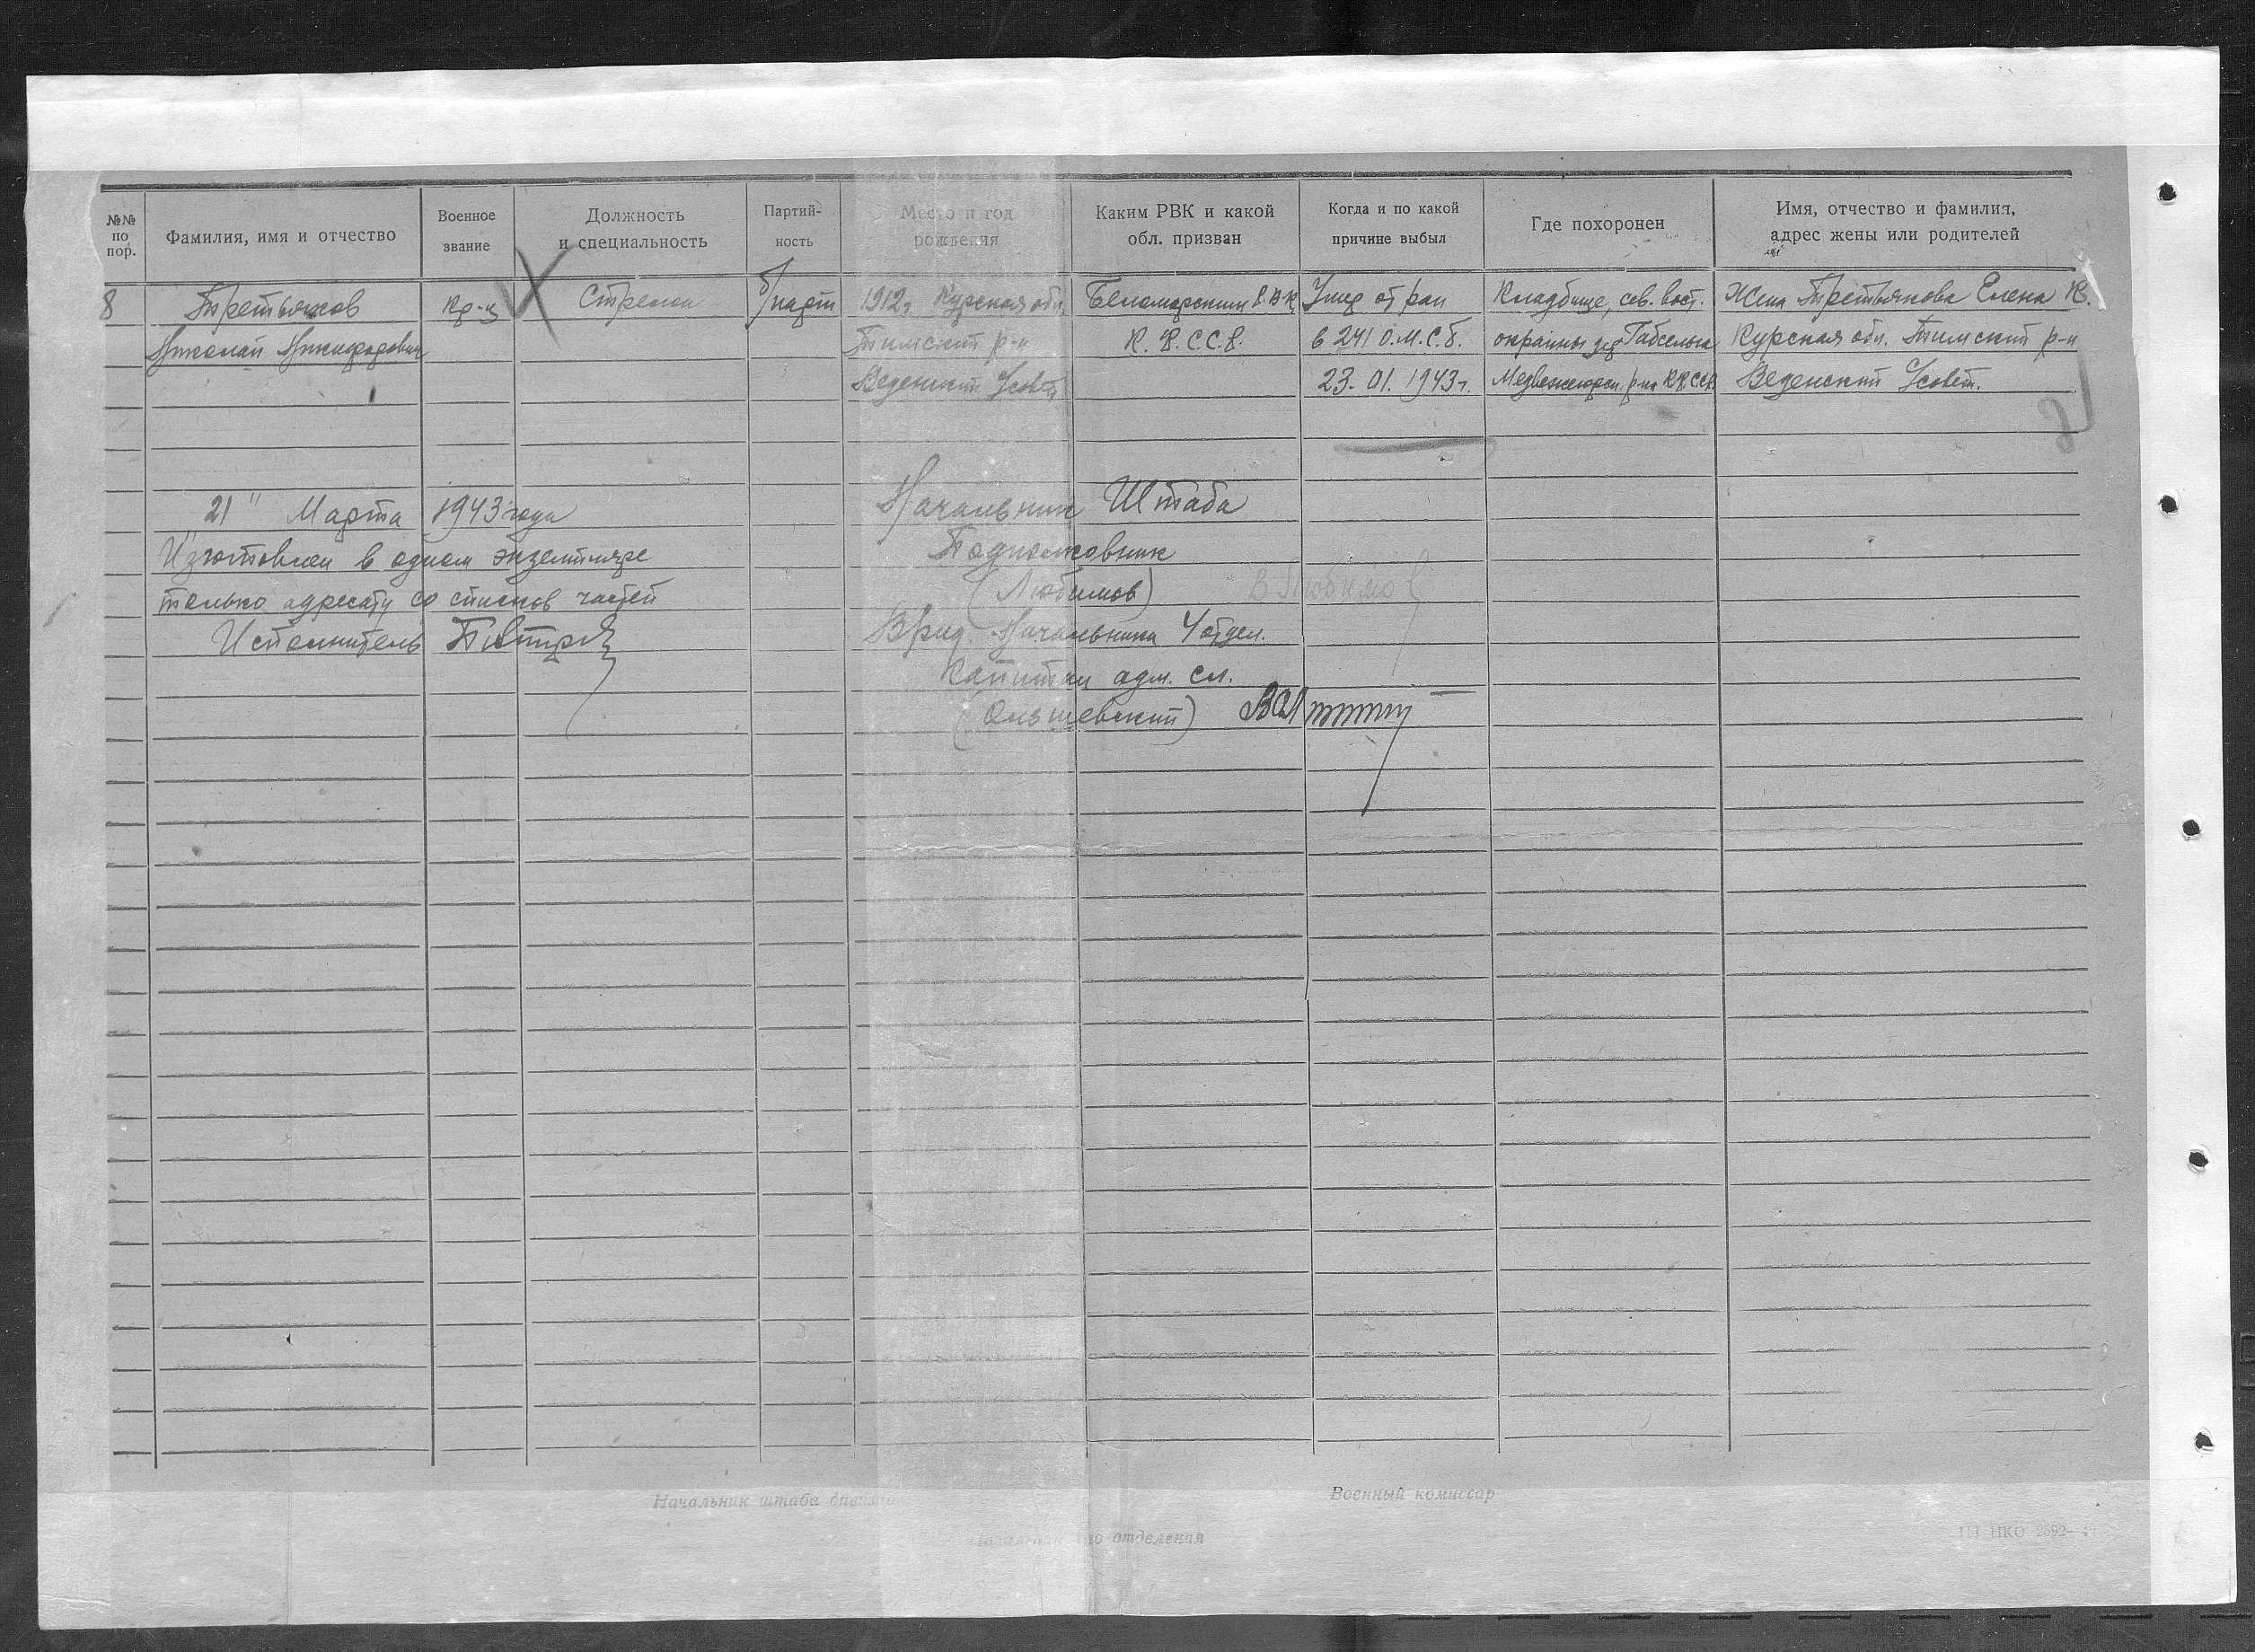 №№ по пор.
Фамилия, имя и отчество
Военное звание
Должность и специальность
Партий-ность
Место и год рождения
Каким РВК и какой обл. призван
Когда и по какой причине выбыл
Где похоронен
Имя, отчество и фамилия, адрес жены или родителей
8 Третьяков кр-ц Стрелок б/парт 1912г. Курская обл. Беломорским Р.В.К. Умер от ран Кладбище, сев. вост. Жена Третьякова Елена К.
Николай Никифорович Тимский р-н К.Ф.С.С.Р. в 241 О.М.С.Б. окраины дер Габсельга Курская обл. Тимский р-н
Веденский с/совет 23.01.1943г. Медвежегорск. р-на К.Ф.ССР. Веденский с/совет.
8
„21" Марта 1943 года Начальник Штаба
Изготовлен в одном экземпляре Подполковник
только адресату со списков частей (Любимов) В Любимов
Исполнитель Врид. Начальника 4 отдел.
Капитан адм. сл.
(Ольшевский)
Начальник штаба дивизии Военный комиссар
отделения
НКО